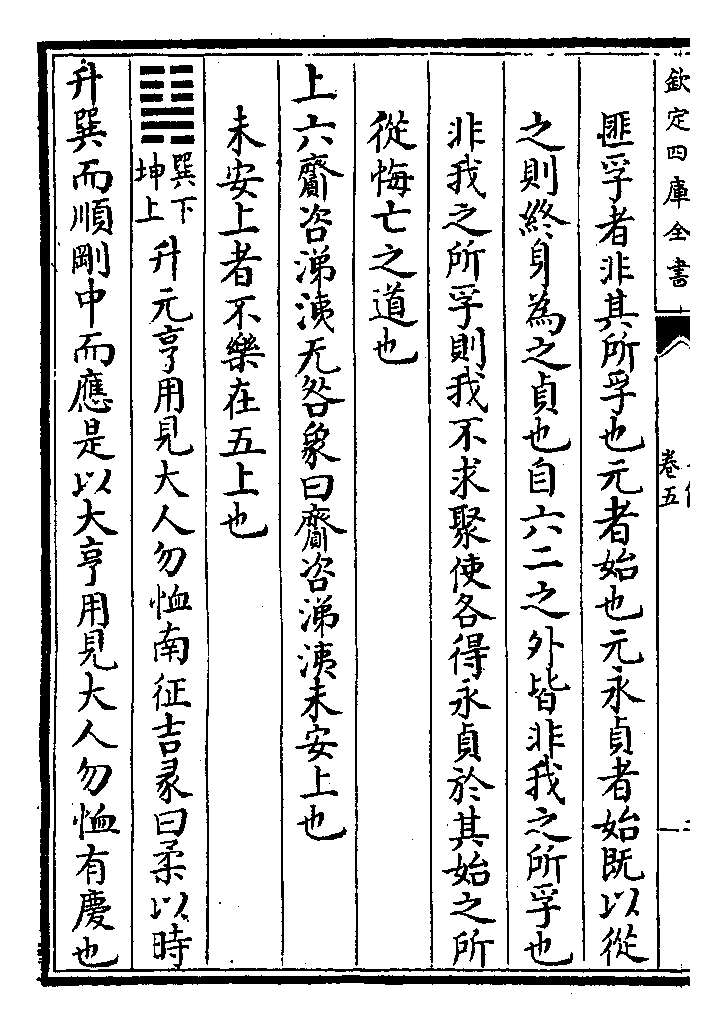 欽定四庫全書
卷五
匪孚者非其所孚也元者始也元永貞者始既以從
之則終身為之貞也自六二之外皆非我之所孚也
非我之所孚則我不求聚使各得永貞於其始之所
從悔亡之道也
上六齎咨涕洟无咎象曰齎咨涕洟未安上也
未安上者不樂在五上也
䷭巽下坤上升元亨用見大人勿恤南征吉彖曰柔以時
升巽而順剛中而應是以大亨用見大人勿恤有慶也